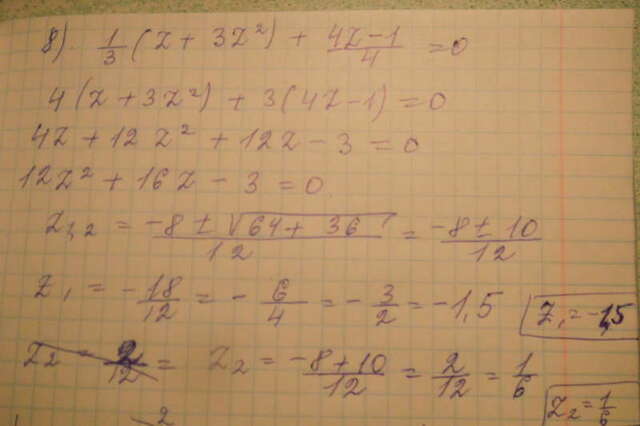 8). 1/3 (z + 3z²) + (4z-1)/4 = 0
4(z + 3z²) + 3(4z-1) = 0
4z + 12z² + 12z - 3 = 0
12z² + 16z - 3 = 0
z₁,₂ = (-8 ± √(64 + 36))/12 = (-8 ± 10)/12
z₁ = -18/12 = -6/4 = -3/2 = -1,5 z₁ = -1,5
z₂ = 2/12 = z₂ = (-8 + 10)/12 = 2/12 = 1/6
z₂ = 1/6
2